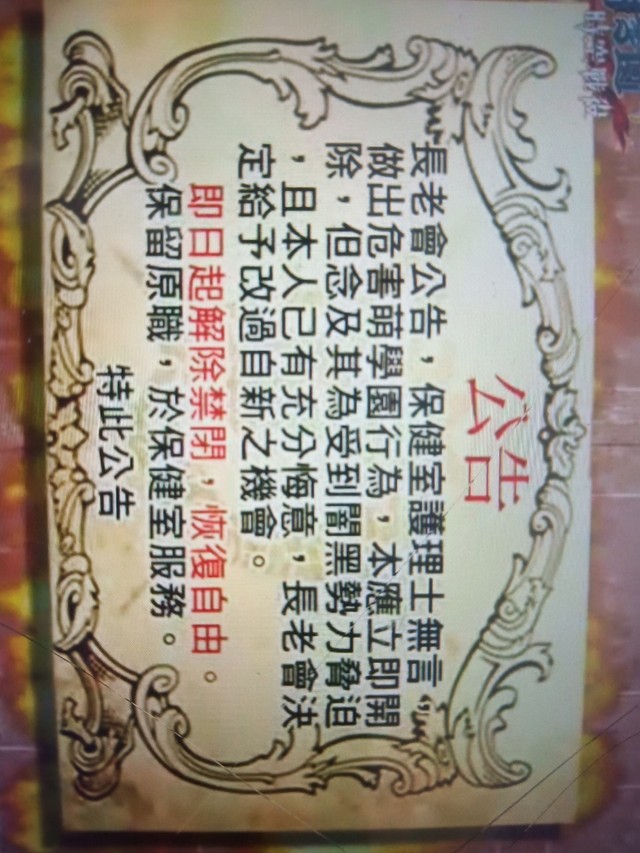 時空戰役
公告
長老會公告，保健室護理士無言，
做出危害萌學園行為，本應立即開
除，但念及其為受到闇黑勢力脅迫
，且本人已有充分悔意，長老會決
定給予改過自新之機會。
即日起解除禁閉，恢復自由。
保留原職，於保健室服務。
特此公告